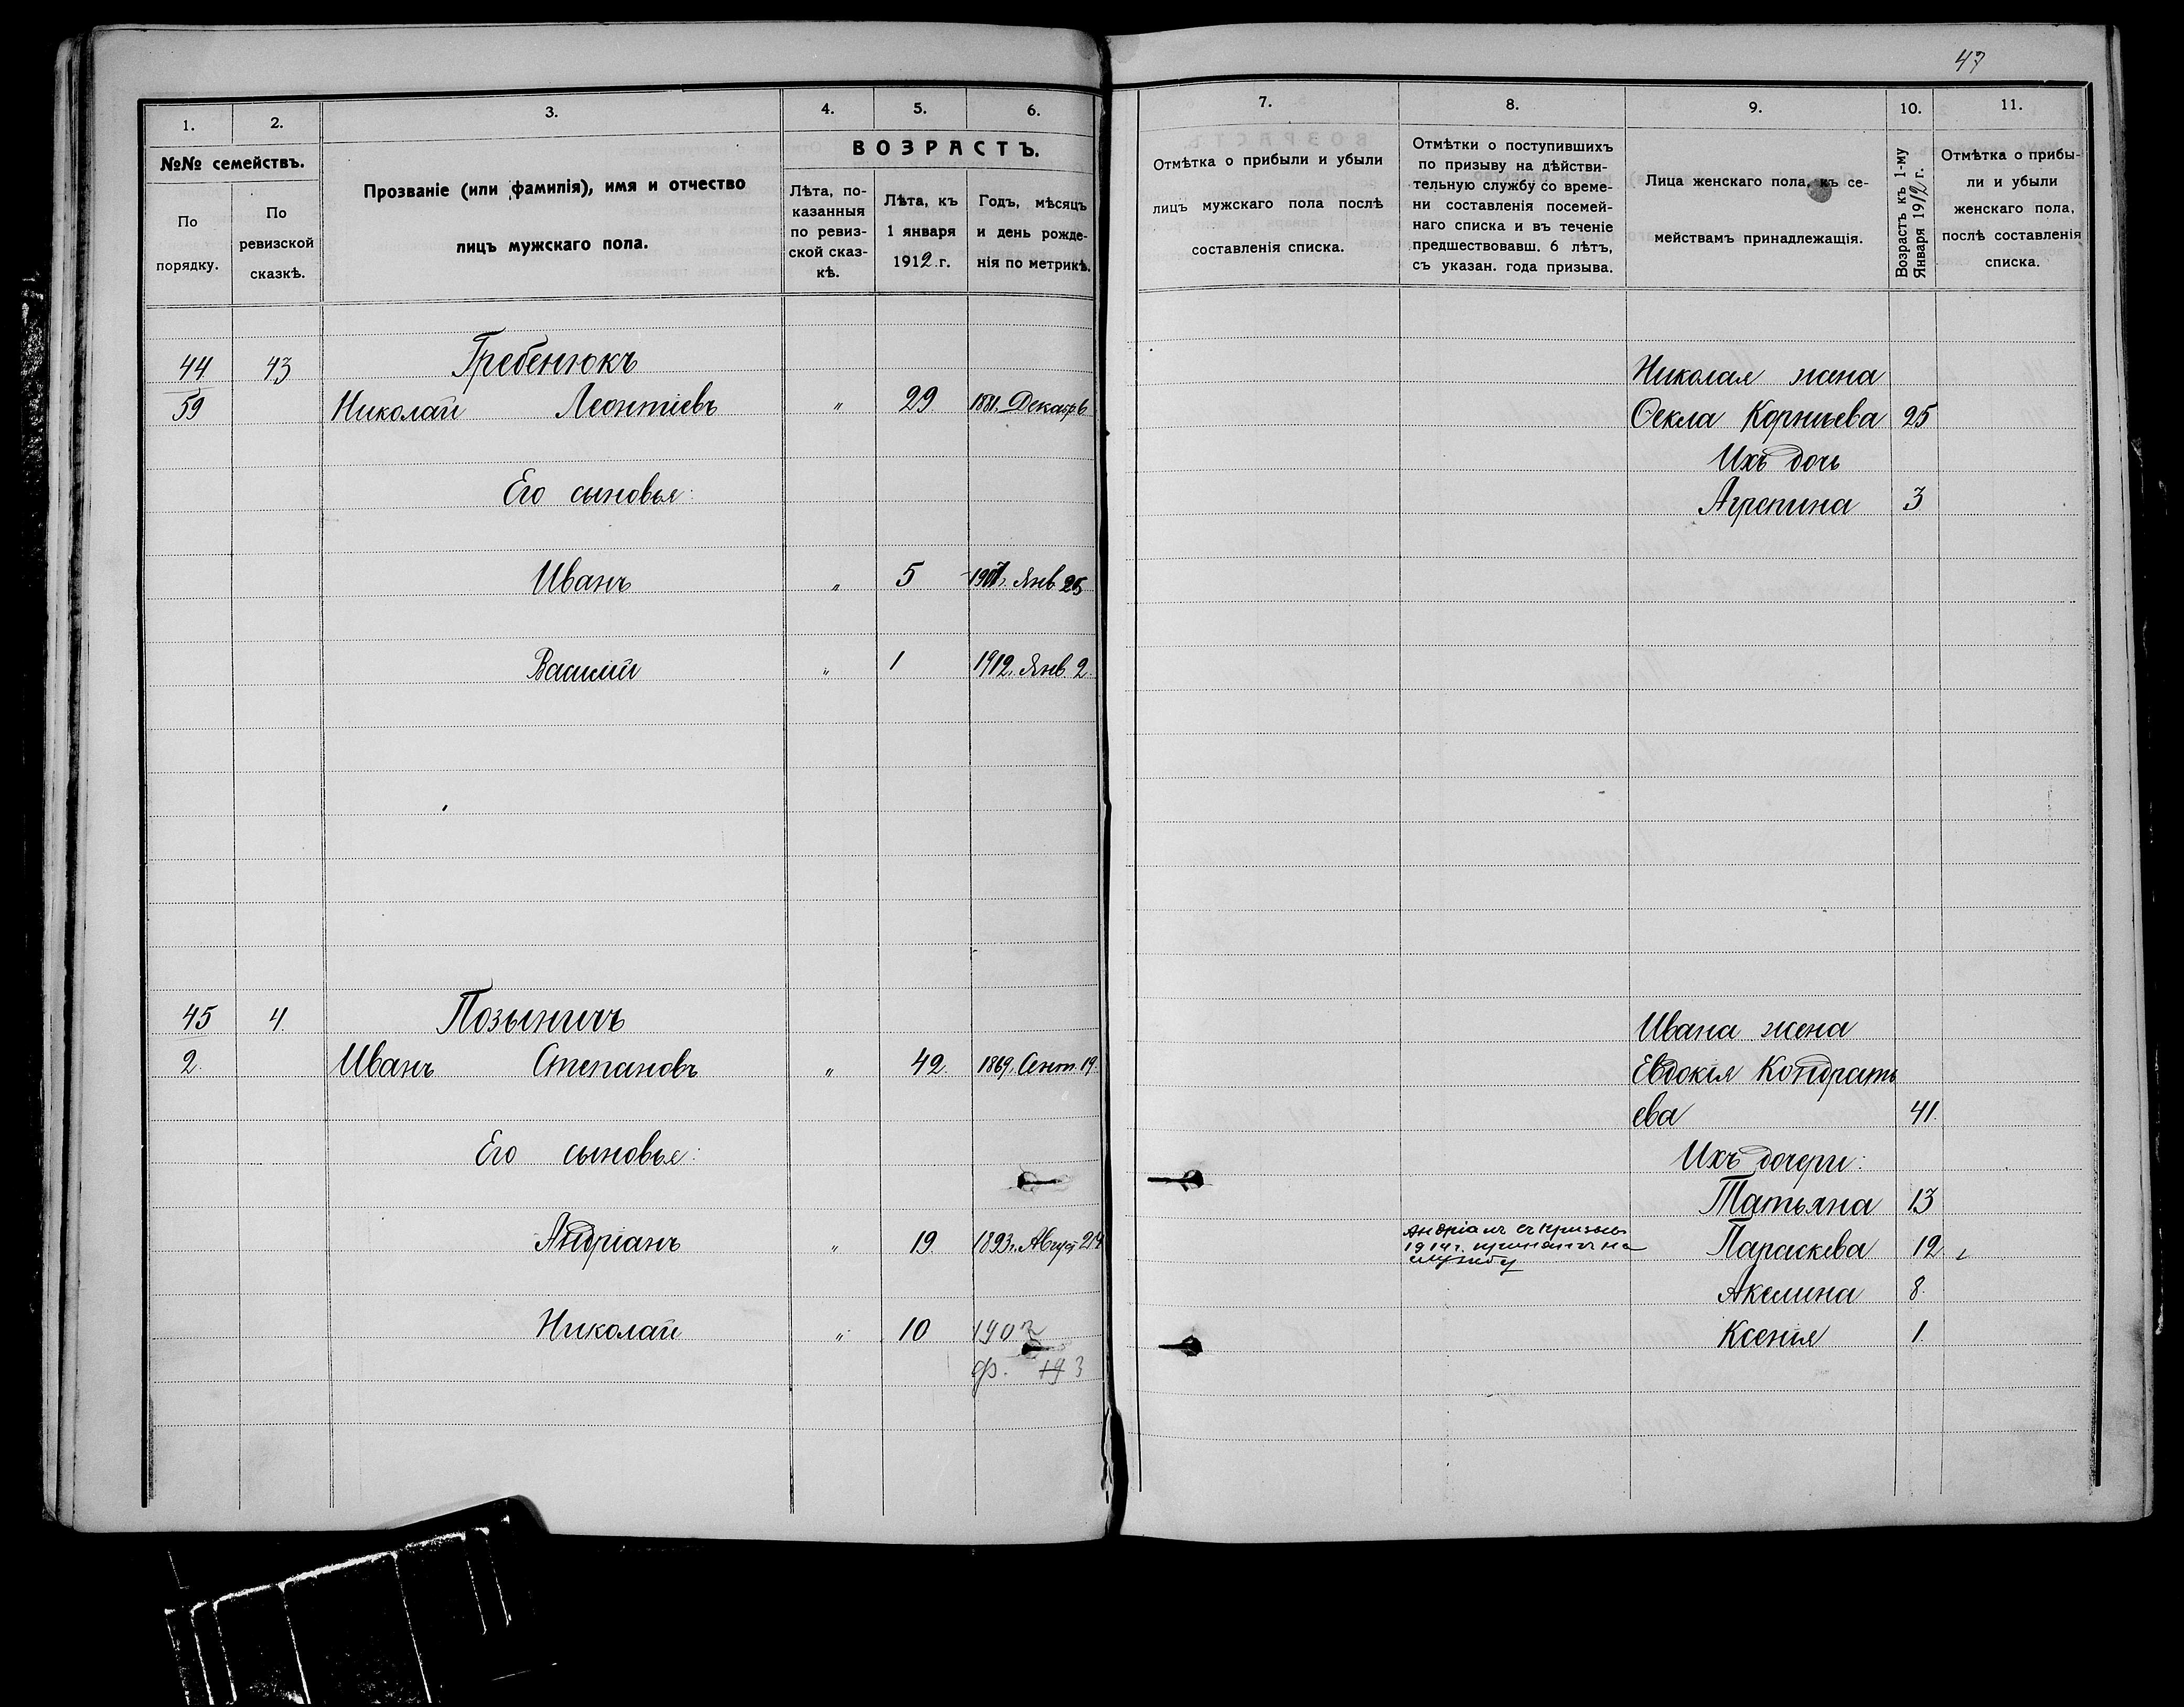 47
1.
2.
3.
4.
5.
6.
№№ семействъ.
По порядку.
По ревизской сказкѣ.
Прозваніе (или фамилія), имя и отчество
лицъ мужскаго пола.
ВОЗРАСТЪ.
Лѣта, по-
казанныя
по ревиз-
ской сказ-
кѣ.
Лѣта, къ
1 января
1912 г.
Годъ, мѣсяцъ
и день рожде-
нія по метрикѣ.
44 43 Гребенюкъ
59 Николай Леонтіевъ " 29 1881. Декаб 6
Его сыновья:
Иванъ " 5 1907 г. Янв 25
Василій " 1 1912. Янв. 2.
45 4. Позыничъ
2. Иванъ Степановъ " 42. 1869. Сент. 19.
Его сыновья:
Андріанъ " 19 1893 г. Август 24
Николай " 10 190
ф. 3
7.
8.
9.
10.
11.
Отмѣтка о прибыли и убыли
лицъ мужскаго пола послѣ
составленія списка.
Отмѣтки о поступившихъ
по призыву на дѣйстви-
тельную службу со време-
ни составленія посемей-
наго списка и въ теченіе
предшествовавш. 6 лѣтъ,
съ указан. года призыва.
Лица женскаго пола, къ се-
мействамъ принадлежащія.
Возрастъ къ 1-му
Января 1912 г.
Отмѣтка о прибы-
ли и убыли
женскаго пола,
послѣ составленія
списка.
Николая жена
Ѳекла Корнѣева 25
Ихъ дочь
Агрепина 3
Ивана жена
Евдокія Кондрать
ева 41.
Ихъ дочери:
Татьяна 13
Андріанъ въ призывъ
1914 г. принятъ на
службу
Параскева 12
Акелина 8.
Ксенія 1.